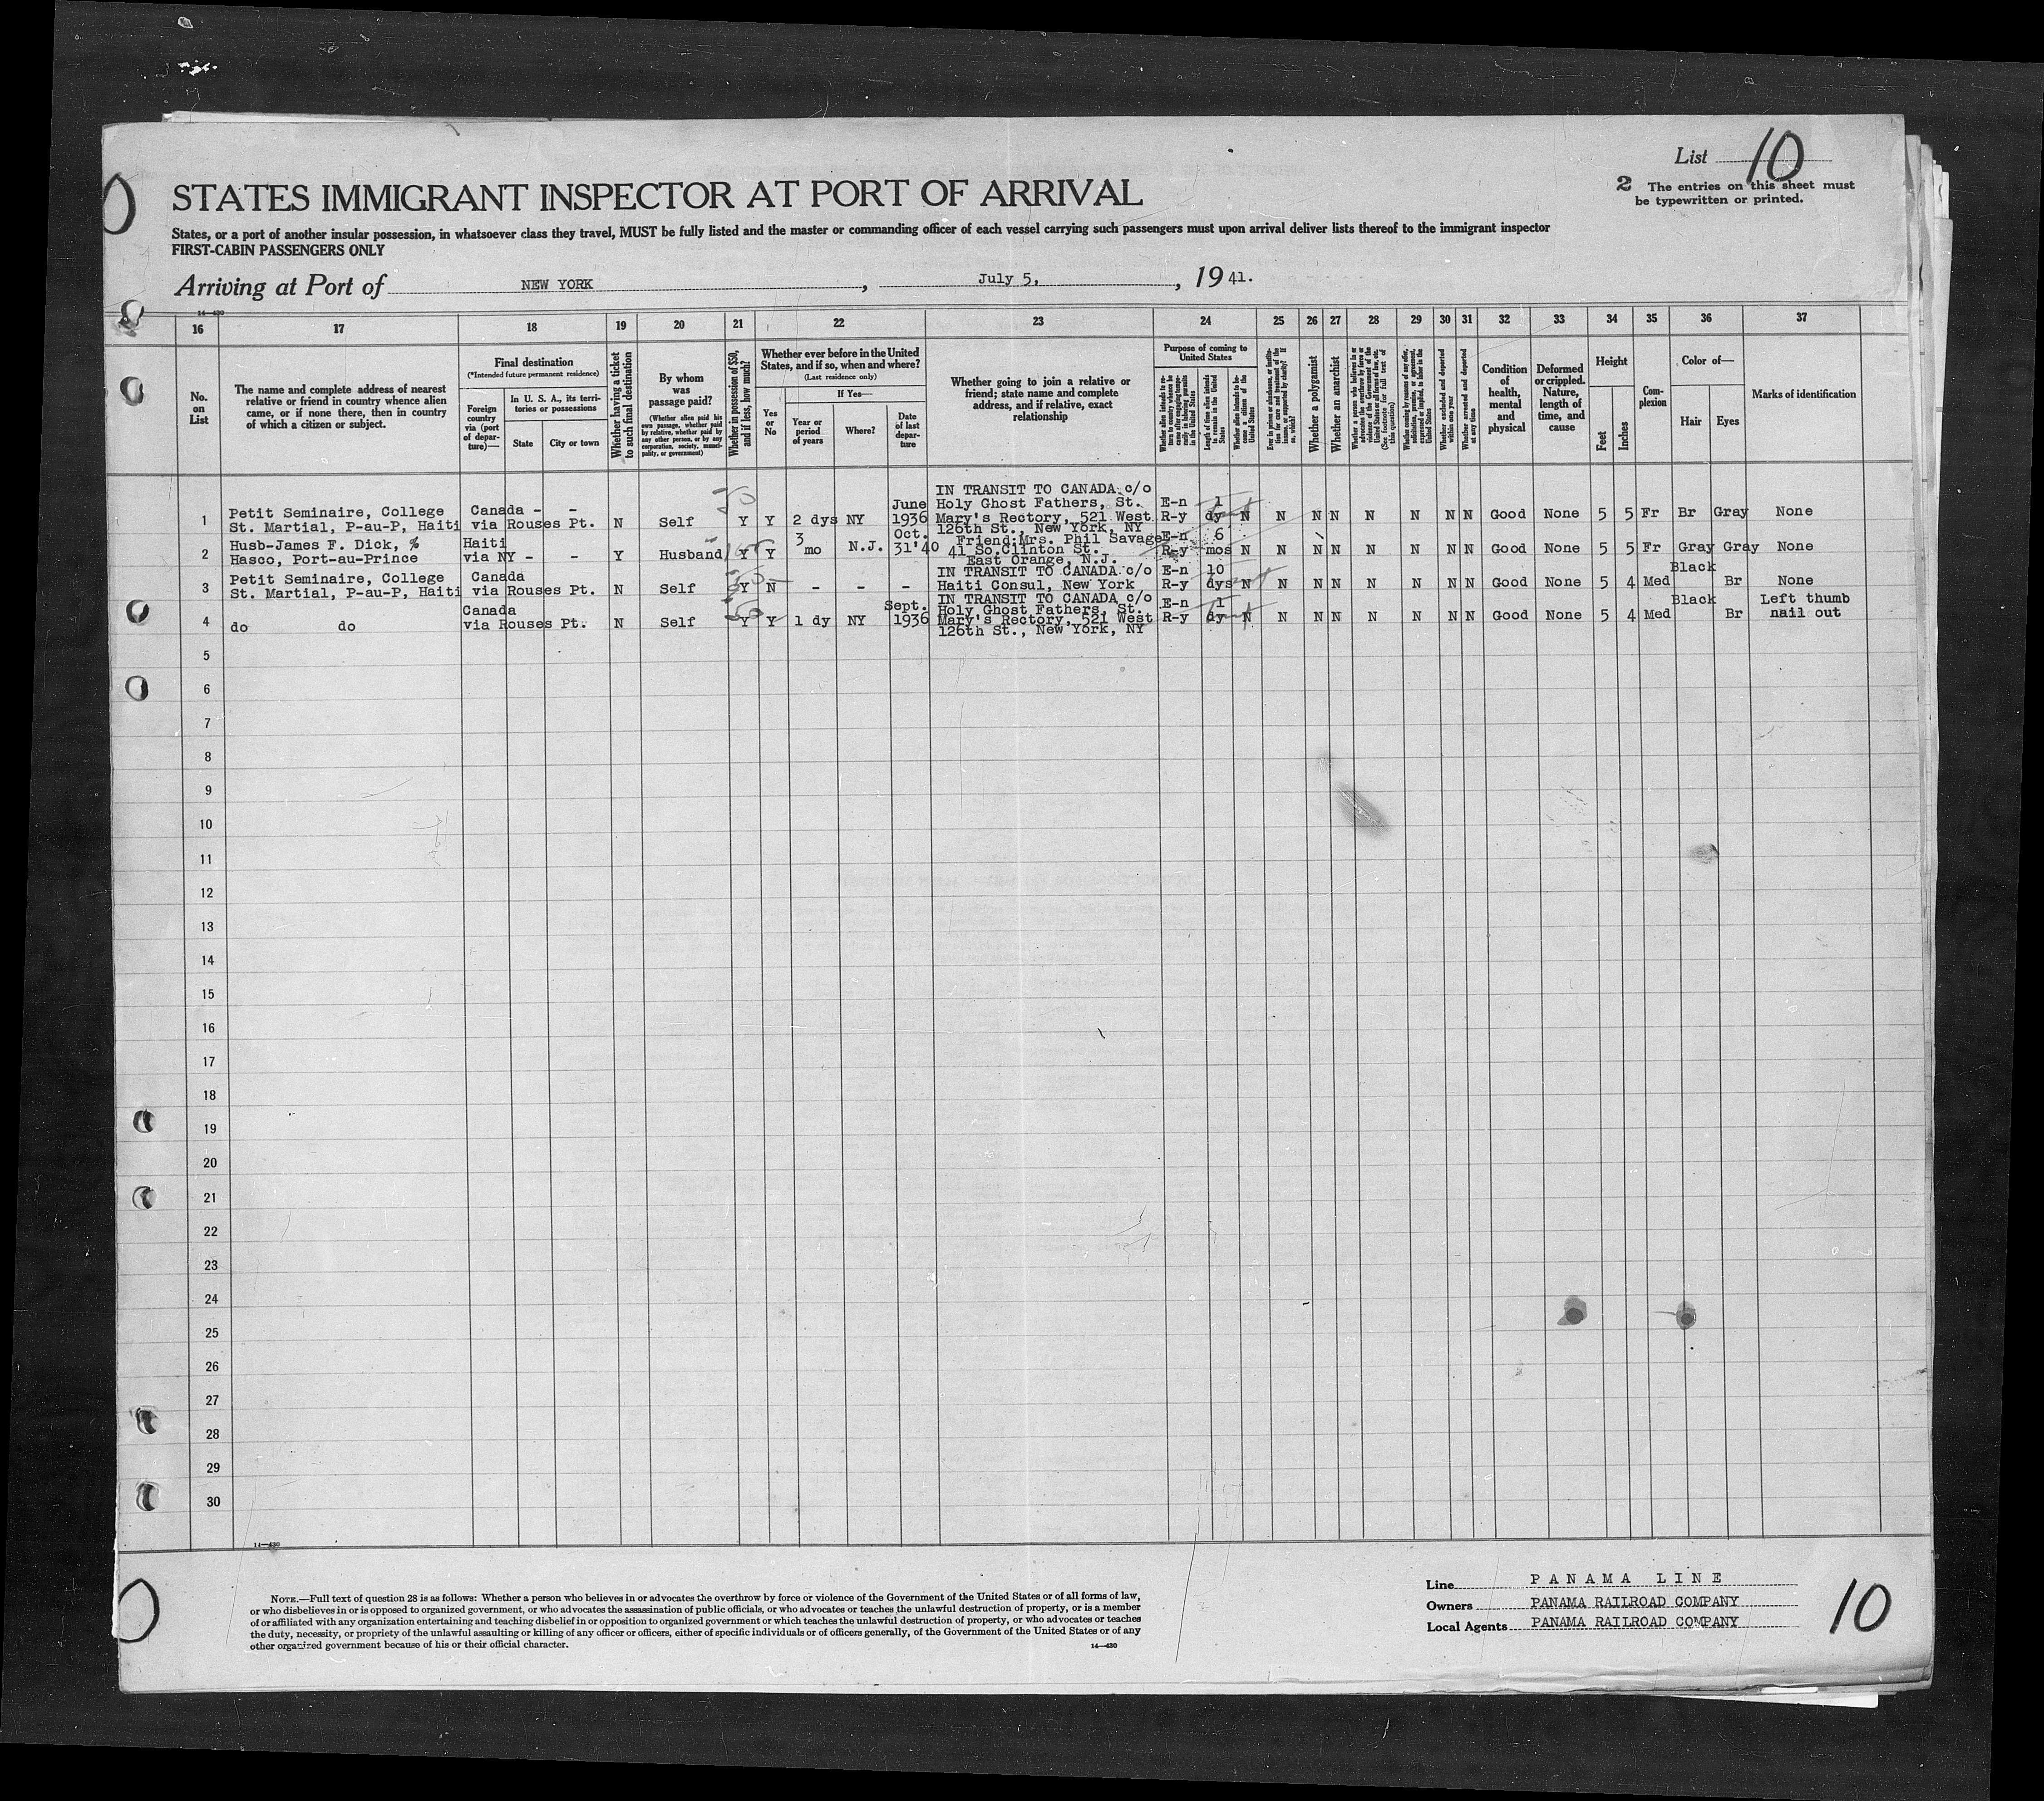 List 10
STATES IMMIGRANT INSPECTOR AT PORT OF ARRIVAL
2 The entries on this sheet must
be typewritten or printed.
States, or a port of another insular possession, in whatsoever class they travel, MUST be fully listed and the master or commanding officer of each vessel carrying such passengers must upon arrival deliver lists thereof to the immigrant inspector
FIRST-CABIN PASSENGERS ONLY
Arriving at Port of NEW YORK, July 5, , 19 41.
14—430
16 17 18 19 20 21 22 23 24 25 26 27 28 29 30 31 32 33 34 35 36 37
No. on List
The name and complete address of nearest
relative or friend in country whence alien
came, or if none there, then in country
of which a citizen or subject.
Final destination
(*Intended future permanent residence)
Foreign country via (port of departure)—
In U. S. A., its territories or possessions
State
City or town
Whether having a ticket to such final destination
By whom was passage paid?
(Whether alien paid his own passage, whether paid by relative, whether paid by any other person, or by any corporation, society, municipality, or government)
Whether in possession of $50, and if less, how much?
Whether ever before in the United States, and if so, when and where?
(Last residence only)
Yes or No
If Yes—
Year or period of years
Where?
Date of last departure
Whether going to join a relative or
friend; state name and complete
address, and if relative, exact
relationship
Purpose of coming to United States
Length of time alien intends to remain in the United States
Whether alien intends to become a citizen of the United States
Whether a polygamist
Whether an anarchist
(See footnote for full text of this question)
Whether excluded and deported within one year
Whether arrested and deported at any time
Condition of health, mental and physical
Deformed or crippled. Nature, length of time, and cause
Height
Feet
Inches
Complexion
Color of—
Hair
Eyes
Marks of identification
1 Petit Seminaire, College
St. Martial, P-au-P, Haiti
Canada - -
via Rouses Pt. N Self Y Y 2 dys NY June 1936
IN TRANSIT TO CANADA c/o
Holy Ghost Fathers, St.
Mary's Rectory, 521 West
126th St., New York, NY
E-n 1
R-y dy N N N N N N N N Good None 5 5 Fr Br Gray None
2 Husb-James F. Dick, %
Hasco, Port-au-Prince
Haiti
via NY - - Y Husband Y Y 3 mo N.J. Oct. 31'40
Friend:Mrs. Phil Savage
41 So.Clinton St.
East Orange, N.J.
E-n 6
R-y mos N N N N N N N N Good None 5 5 Fr Gray Gray None
3 Petit Seminaire, College
St. Martial, P-au-P, Haiti
Canada
via Rouses Pt. N Self Y N - - -
IN TRANSIT TO CANADA c/o
Haiti Consul, New York
E-n 10
R-y dys N N N N N N N N Good None 5 4 Med Black Br None
4 do do
Canada
via Rouses Pt. N Self Y Y 1 dy NY Sept. 1936
IN TRANSIT TO CANADA c/o
Holy Ghost Fathers, St.
Mary's Rectory, 521 West
126th St., New York, NY
E-n 1
R-y dy N N N N N N N N Good None 5 4 Med Black Br Left thumb
nail out
5
6
7
8
9
10
11
12
13
14
15
16
17
18
19
20
21
22
23
24
25
26
27
28
29
30
14—430
NOTE.—Full text of question 28 is as follows: Whether a person who believes in or advocates the overthrow by force or violence of the Government of the United States or of all forms of law,
or who disbelieves in or is opposed to organized government, or who advocates the assassination of public officials, or who advocates or teaches the unlawful destruction of property, or is a member
of or affiliated with any organization entertaining and teaching disbelief in or opposition to organized government or which teaches the unlawful destruction of property, or who advocates or teaches
the duty, necessity, or propriety of the unlawful assaulting or killing of any officer or officers, either of specific individuals or of officers generally, of the Government of the United States or of any
other organized government because of his or their official character.
14—430
Line PANAMA LINE
Owners PANAMA RAILROAD COMPANY
Local Agents PANAMA RAILROAD COMPANY
10